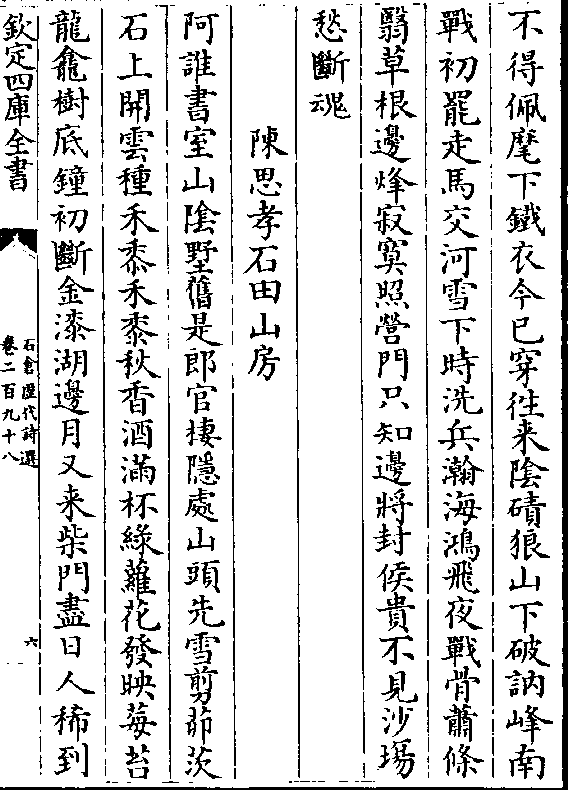 不得佩麾下鐵衣今已穿往来陰磧狼山下破訥峰南
戰初罷走馬交河雪下時洗兵瀚海鴻飛夜戰骨蕭條
翳草根邊烽寂寞照營門只知邊將封侯貴不見沙場
愁斷魂
陳思孝石田山房
阿誰書室山陰墅舊是郎官棲隱處山頭先雪剪茆茨
石上開雲種禾黍禾黍秋香酒滿杯綠蘿花發映莓苔
龍龕樹底鐘初斷金漆湖邊月又来柴門盡日人稀到
欽定四庫全書
石倉歷代詩選
卷二百九十八
六